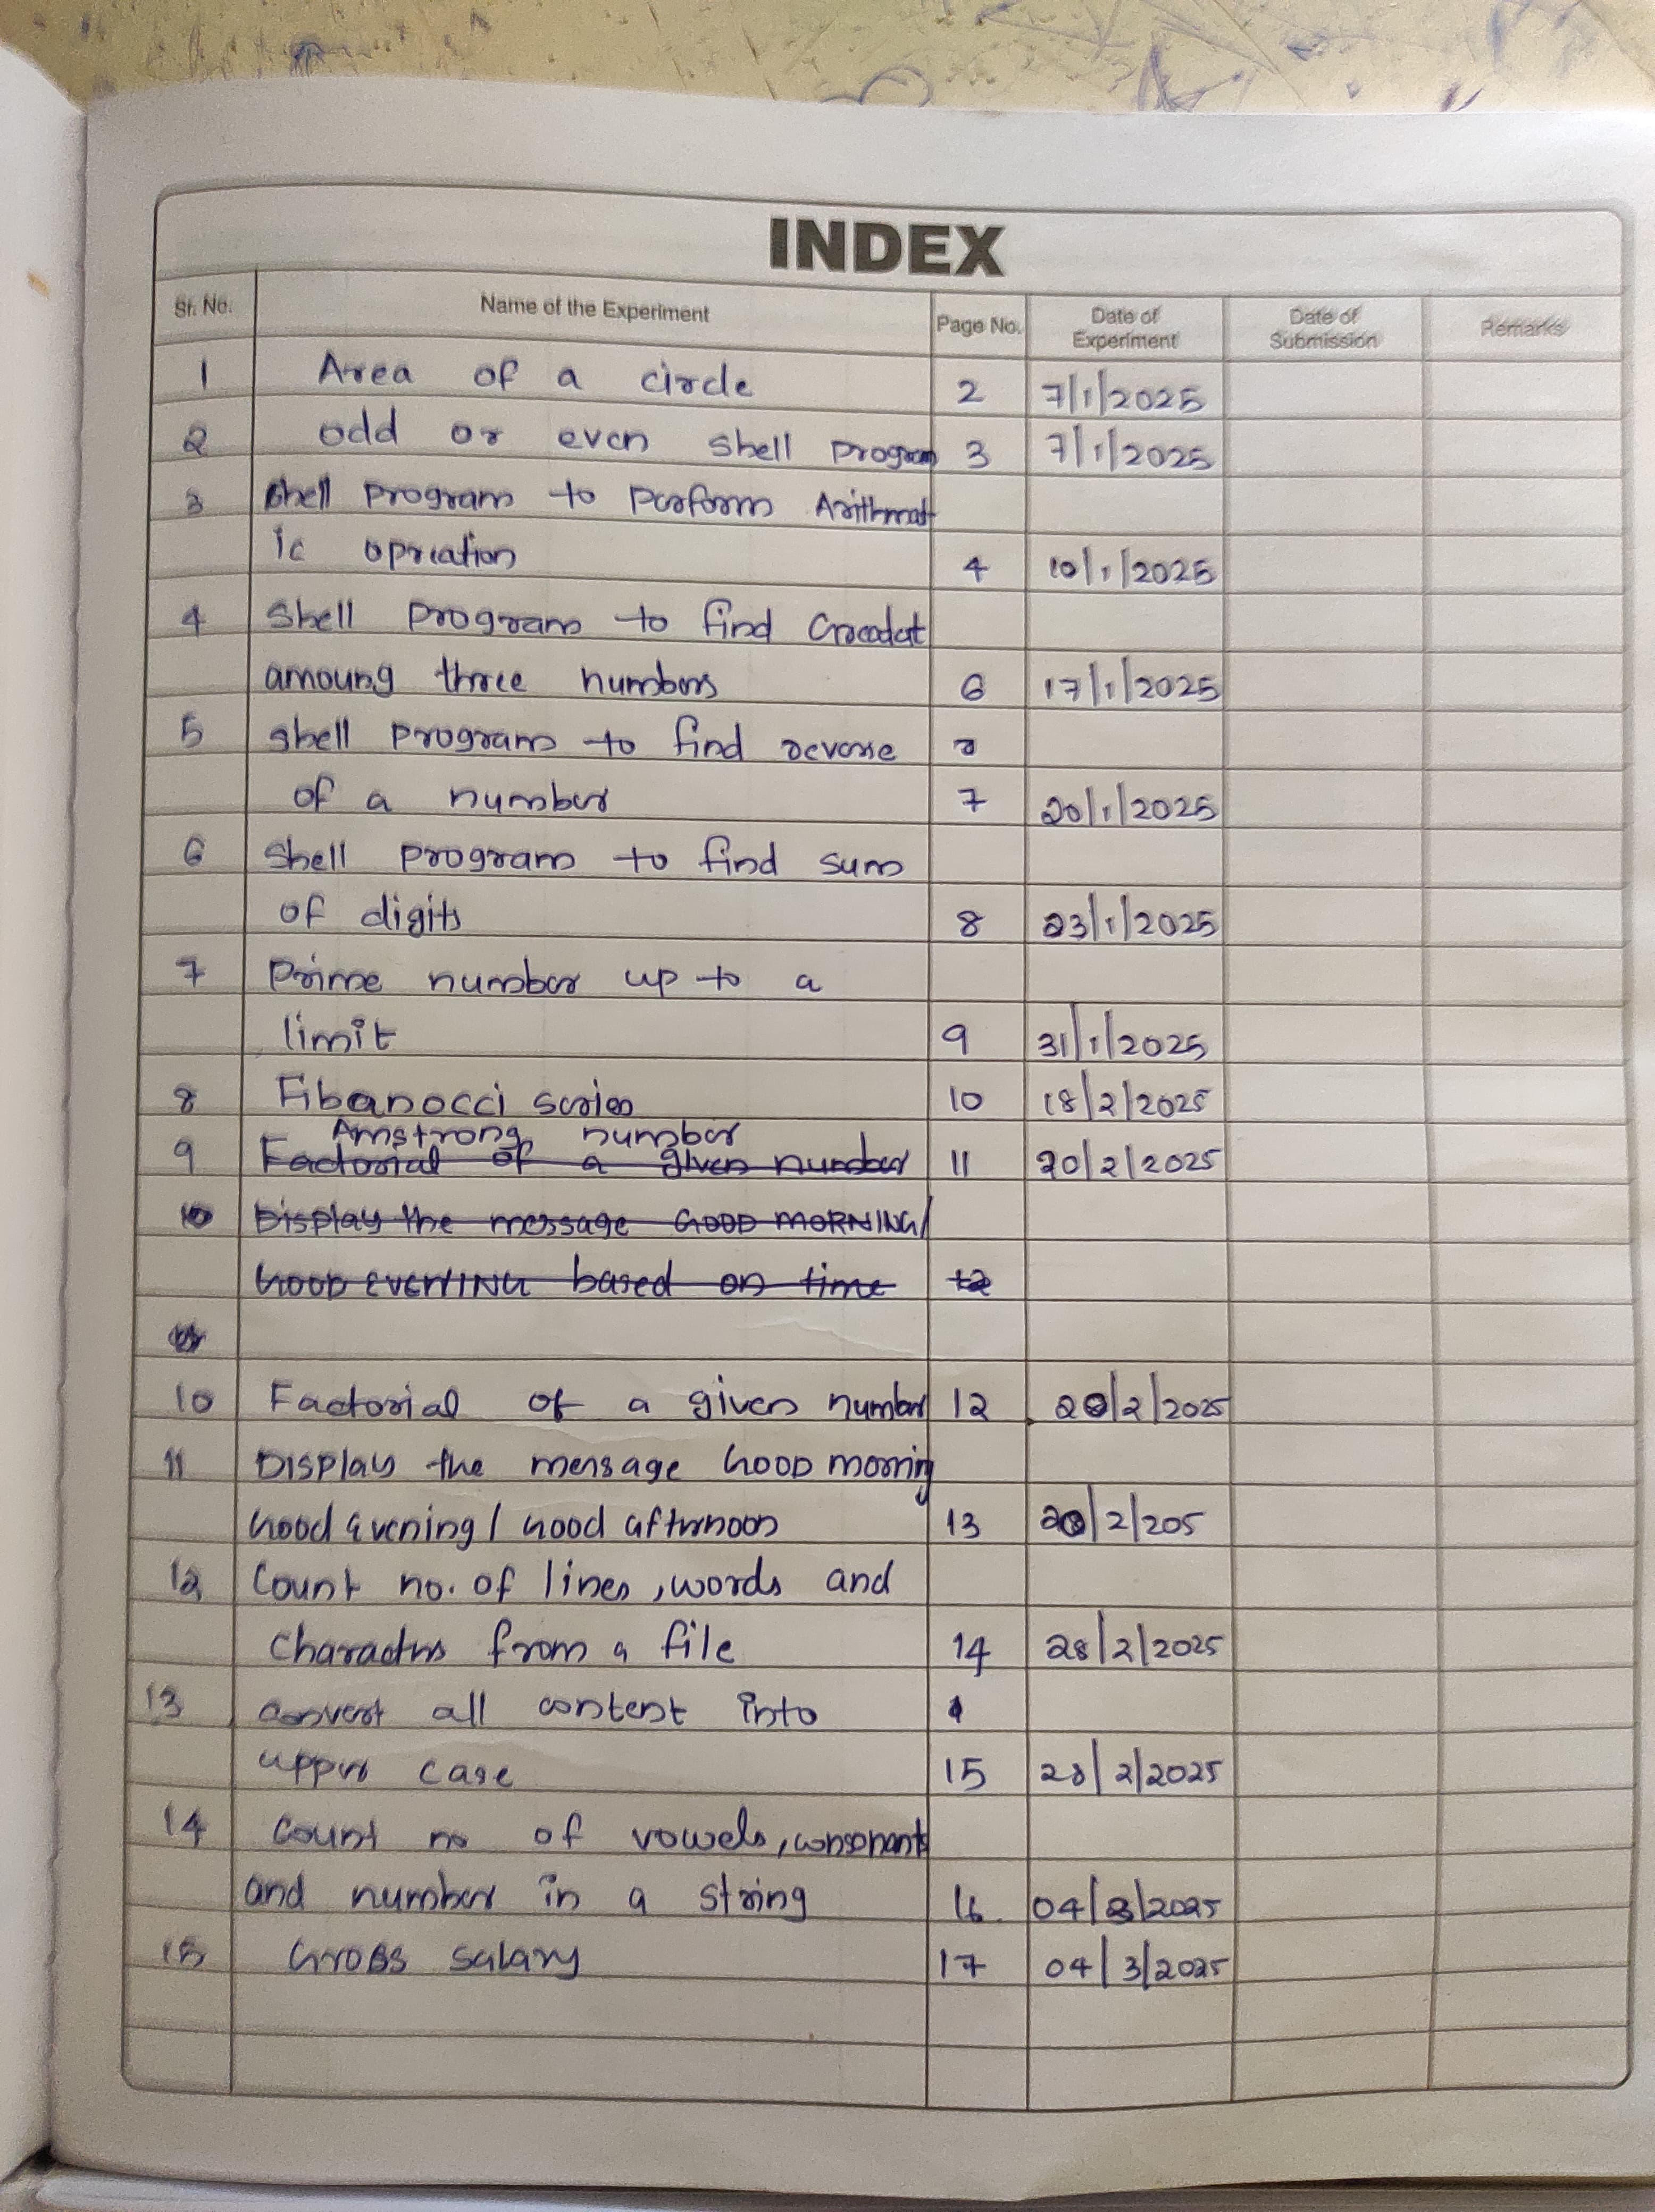 INDEX
Sr. No. Name of the Experiment Page No. Date of Experiment Date of Submission Remarks
1 Area of a circle 2 7/1/2025
2 odd or even shell program 3 7/1/2025
3 shell program to perform Arithmat
ic opreation 4 10/1/2025
4 shell program to find
amoung three numbers 6 17/1/2025
5 shell program to find reverse
of a number 7 20/1/2025
6 shell program to find sum
of digits 8 23/1/2025
7 Prime number up to a
limit 9 31/1/2025
8 Fibanocci series 10 18/2/2025
Amstrong number
9 Factorial of a given number 11 20/2/2025
10 Display the message GOOD MORNING/
GOOD EVENING based on time 12
10 Factorial of a given number 12 20/2/2025
11 Display the message GOOD morning
Good Evening / Good afternoon 13 20/2/205
12 Count no. of lines, words and
characters from a file 14 28/2/2025
13 convert all content into
upper case 15 28/2/2025
14 count no of vowels, consonants
and number in a string 16 04/3/2025
15 Gross salary 17 04/3/2025